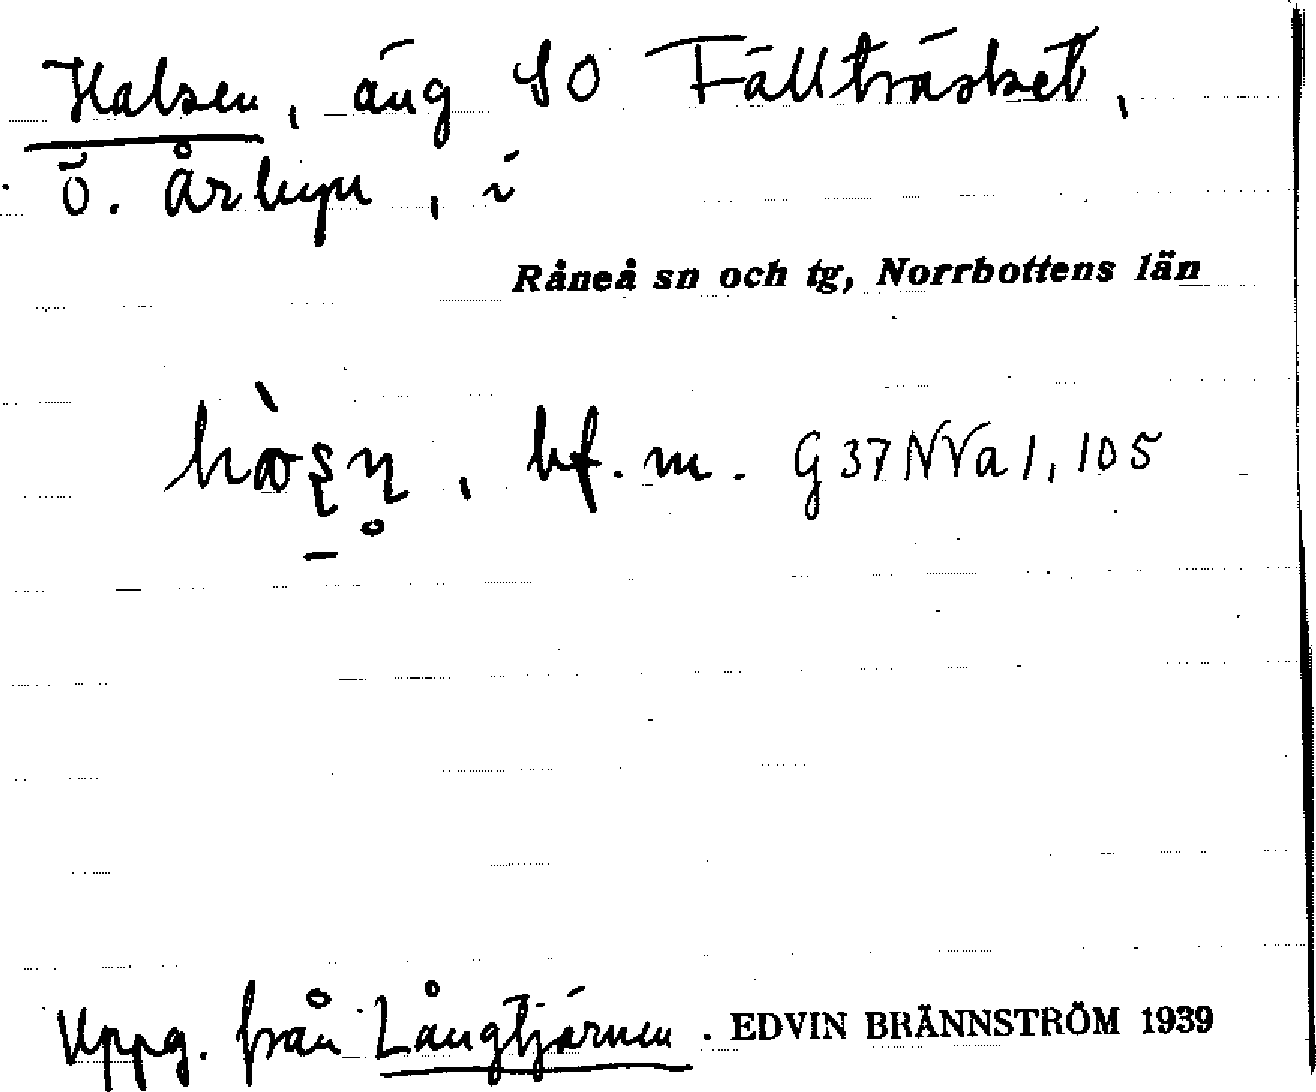 Halsen, äng SO Fällträsket,
Ö. Årbyn, i
Råneå sn och tg, Norrbottens län
bf. m. G37NVa1, 105
Uppg. från Långtjärnen. EDVIN BRÄNNSTRÖM 1939